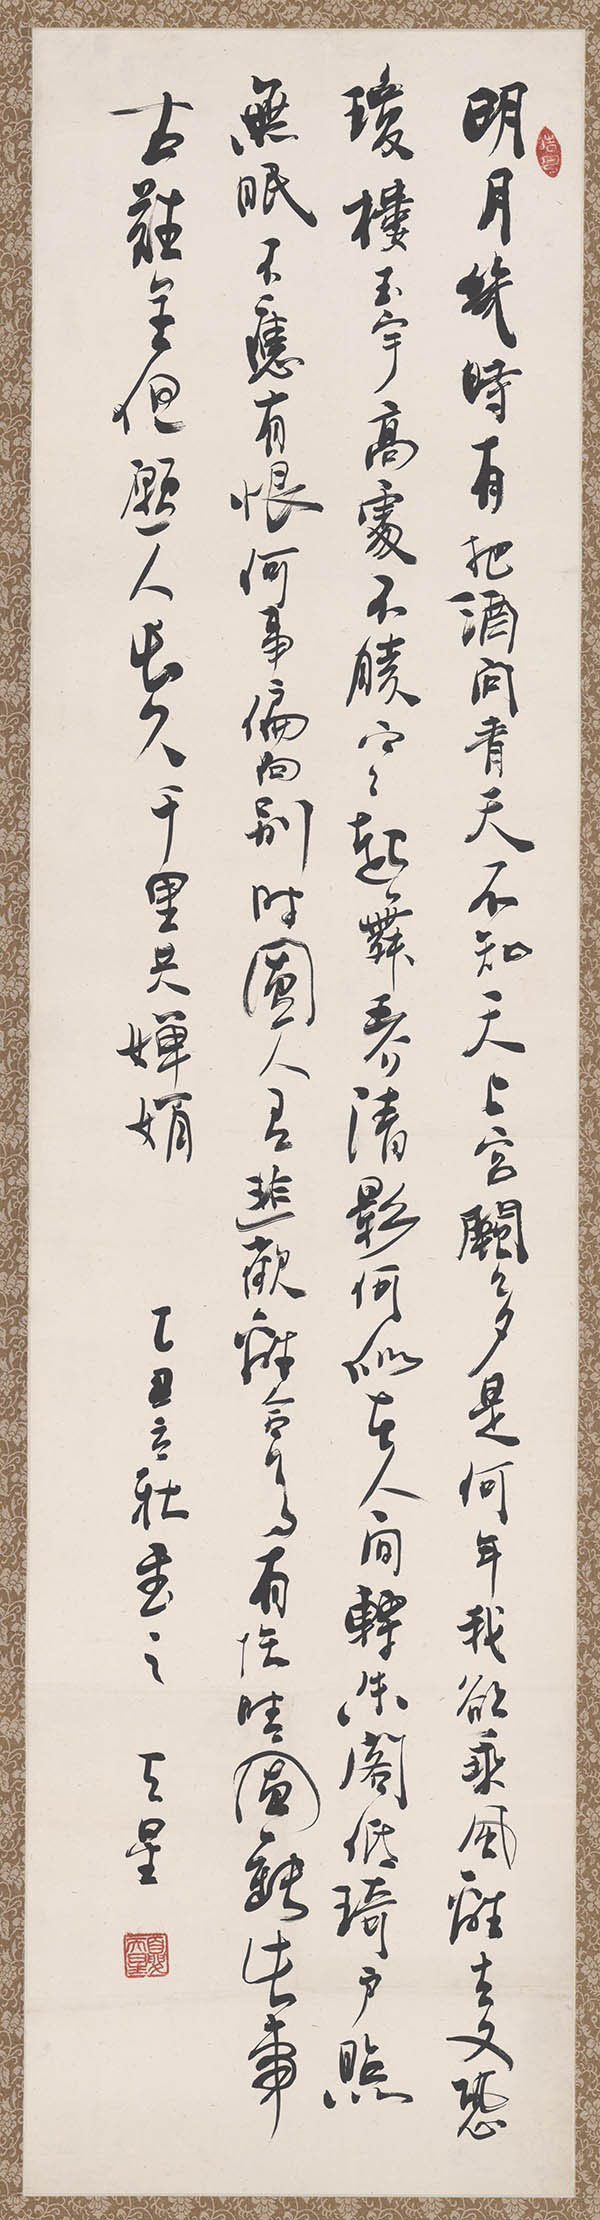 明月幾時有把酒問青天不知天上宮闕今夕是何年我欲乘風離去又恐
瓊樓玉宇高處不勝寒起舞弄清影何似在人間轉朱閣低琦戶照
無眠不應有恨何事偏向別時圓人有悲歡離合月有陰晴圓缺此事
古難全但願人長久千里共嬋娟 乙丑立秋書之 天星
夏天星